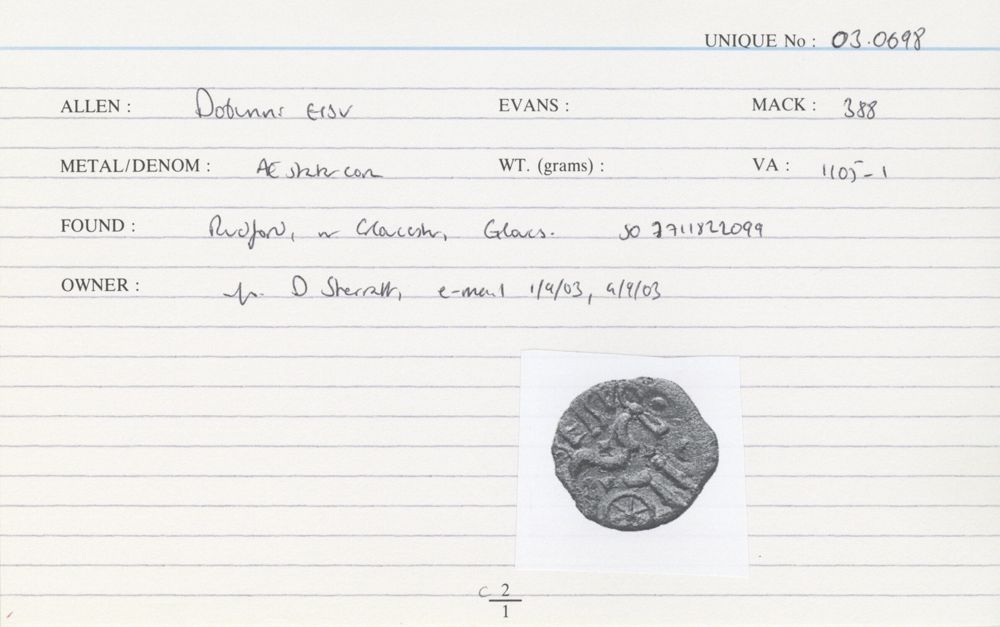 UNIQUE No : 03.0698
ALLEN : Dobunni EISV EVANS : MACK : 388
METAL/DENOM : AE stater core WT. (grams) : VA : 1105-1
FOUND : Rudford, nr Gloucester, Glocs. SO 7711822099
OWNER : D Sherratt, e-mail 1/9/03, 9/9/03
EISV
c 2
1